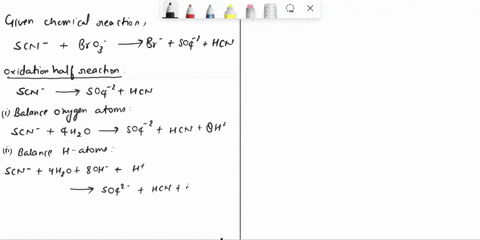 Given chemical reaction,
SCN⁻ + BrO₃⁻ ⟶ Br⁻ + SO₄⁻² + HCN
oxidation half reaction:
SCN⁻ ⟶ SO₄⁻² + HCN
(i) Balance oxygen atoms:
SCN⁻ + 4H₂O ⟶ SO₄⁻² + HCN + 8H⁺
(ii) Balance H-atoms:
SCN⁻ + 4H₂O + 8OH⁻ + H⁺
⟶ SO₄²⁻ + HCN +